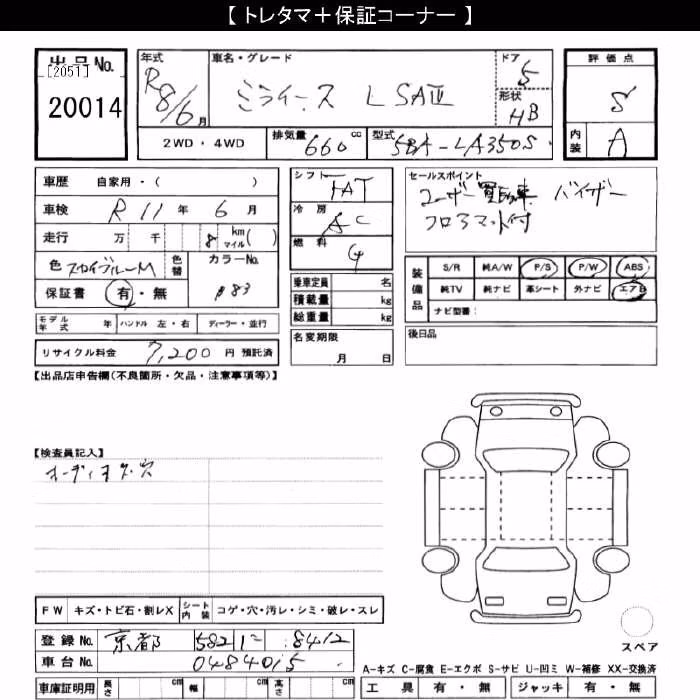 【 トレタマ＋保証コーナー 】
出品No.
[2051]
20014
年式 R8/6月
車名・グレード ミライース L SAⅢ
ドア 5
形状 HB
評価点 S
内装 A
2WD・4WD 排気量 660cc 型式 5BA-LA350S
車歴 自家用・( )
車検 R 11年 6月
走行 万 千 8 km マイル ( )
色 スカイブルーM 色替 カラーNo. B83
保証書 有・無
モデル年式 年 ハンドル 左・右 ディーラー・並行
リサイクル料金 7,200 円 預託済
シフト IAT
冷房 AC
燃料 G
乗車定員 名
積載量 kg
総重量 kg
名変期限 月 日
セールスポイント
ユーザー買取車 バイザー
フロアマット付
装備品
S/R 純A/W P/S P/W ABS
純TV 純ナビ 革シート 外ナビ エアB
ナビ型番:
後日品
【出品店申告欄(不良箇所・欠品・注意事項等)】
【検査員記入】
オーディオレス・穴
FW キズ・トビ石・割レX シート内装 コゲ・穴・汚レ・シミ・破レ・スレ
登録No. 京都 582 に 8412
車台No. 0484015
車庫証明用 長さ cm 幅 cm 高さ cm
スペア
A-キズ C-腐食 E-エクボ S-サビ U-凹ミ W-補修 XX-交換済
工具 有・無 ジャッキ 有・無